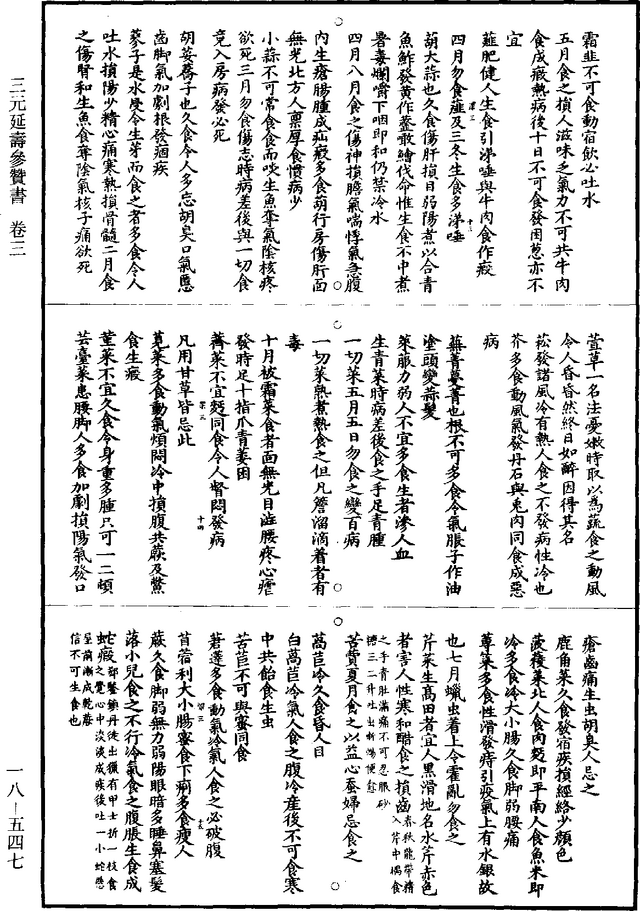 三元延壽參贊書 卷三
霜韭不可食動宿飲必吐水
五月食之損人滋味乏氣力不可共牛肉
食成瘕熱病後十日不可食發困葱亦不
宜
薤肥健人生食引涕唾與牛肉食作癥
四月勿食薤及三冬生食多涕唾
葫大蒜也久食傷肝損目弱陽煮以合青
魚鮓發黃作虀敢鱠伐命惟生食不中煮
暑毒爛嚼下咽即和仍禁冷水
四月八月食之傷神損膽氣喘悸氣急腹
內生瘡腸腫成疝瘕多食葫行房傷肝面
無光北方人稟厚食慣病少
小蒜不可常食食而啖生魚奪氣陰核疼
欲死三月勿食傷志時病差後與一切食
竟入房病發必死
胡荽蕎子也久食令人多忘胡臭口氣䘌
齒腳氣加劇根發痼疾
蓼子是水浸令生芽而食之者多食令人
吐水損陽少精心痛寒熱損骨髓二月食
之傷腎和生魚食奪陰氣核子痛欲死
萱草一名忘憂嫩時取以為蔬食之動風
令人昏昏然終日如醉因得其名
菘發諸風冷有熱人食之不發病性冷也
芥多食動風氣發丹石與兎肉同食成惡
病
蕪菁蔓菁也根不可多食令氣脹子作油
塗頭變蒜髮
萊菔力弱人不宜多食生者滲人血
生青菜時病差後食之手足青腫
一切菜五月五日勿食之變百病
一切菜熟煮熱食之但凡簷溜滴着者有
毒
十月被霜菜食者面無光目澁腰疼心瘧
發時足十指爪青萎困
薺菜不宜麪同食令人督悶發病
凡用甘草皆忌此
莧菜多食動氣煩悶冷中損腹共蕨及鱉
食生瘕
堇菜不宜久食令身重多腫只可一二頓
芸薹菜患腰脚人多食加劇損陽氣發口
瘡齒痛生虫胡臭人忌之
鹿角菜久食發宿疾損經絡少顏色
菠薐菜北人食肉麪即平南人食魚米即
冷多食冷大小腸久食脚弱腰痛
蓴菜多食性滑發痔引疫氣上有水銀故
也七月蠟虫着上令霍亂勿食之
芹菜生高田者宜人黑滑地名水芹赤色
者害人性寒和醋食之損齒春秋龍帶精入芹中偶食
之手青肚滿痛不可忍服砂糖三二升吐出蜥蜴便愈
苦蕒夏月食之以益心蚕婦忌食之
萵苣冷久食昏人目
白萵苣冷氣人食之腹冷産後不可食寒
中共飴食生虫
苦苣不可與蜜同食
莙薘多食動氣冷氣人食之必破腹
苜蓿利大小腸蜜食下痢多食瘦人
蕨久食脚弱無力弱陽眼暗多睡鼻塞髮
落小兒食之不行冷氣食之腹脹生食成
蛇瘕郄鑒鎮丹徒出獵有甲士折一枝食之覺心中淡淡成疾後吐一小蛇懸
屋前漸成乾蕨信不可生食也
一八—五四七